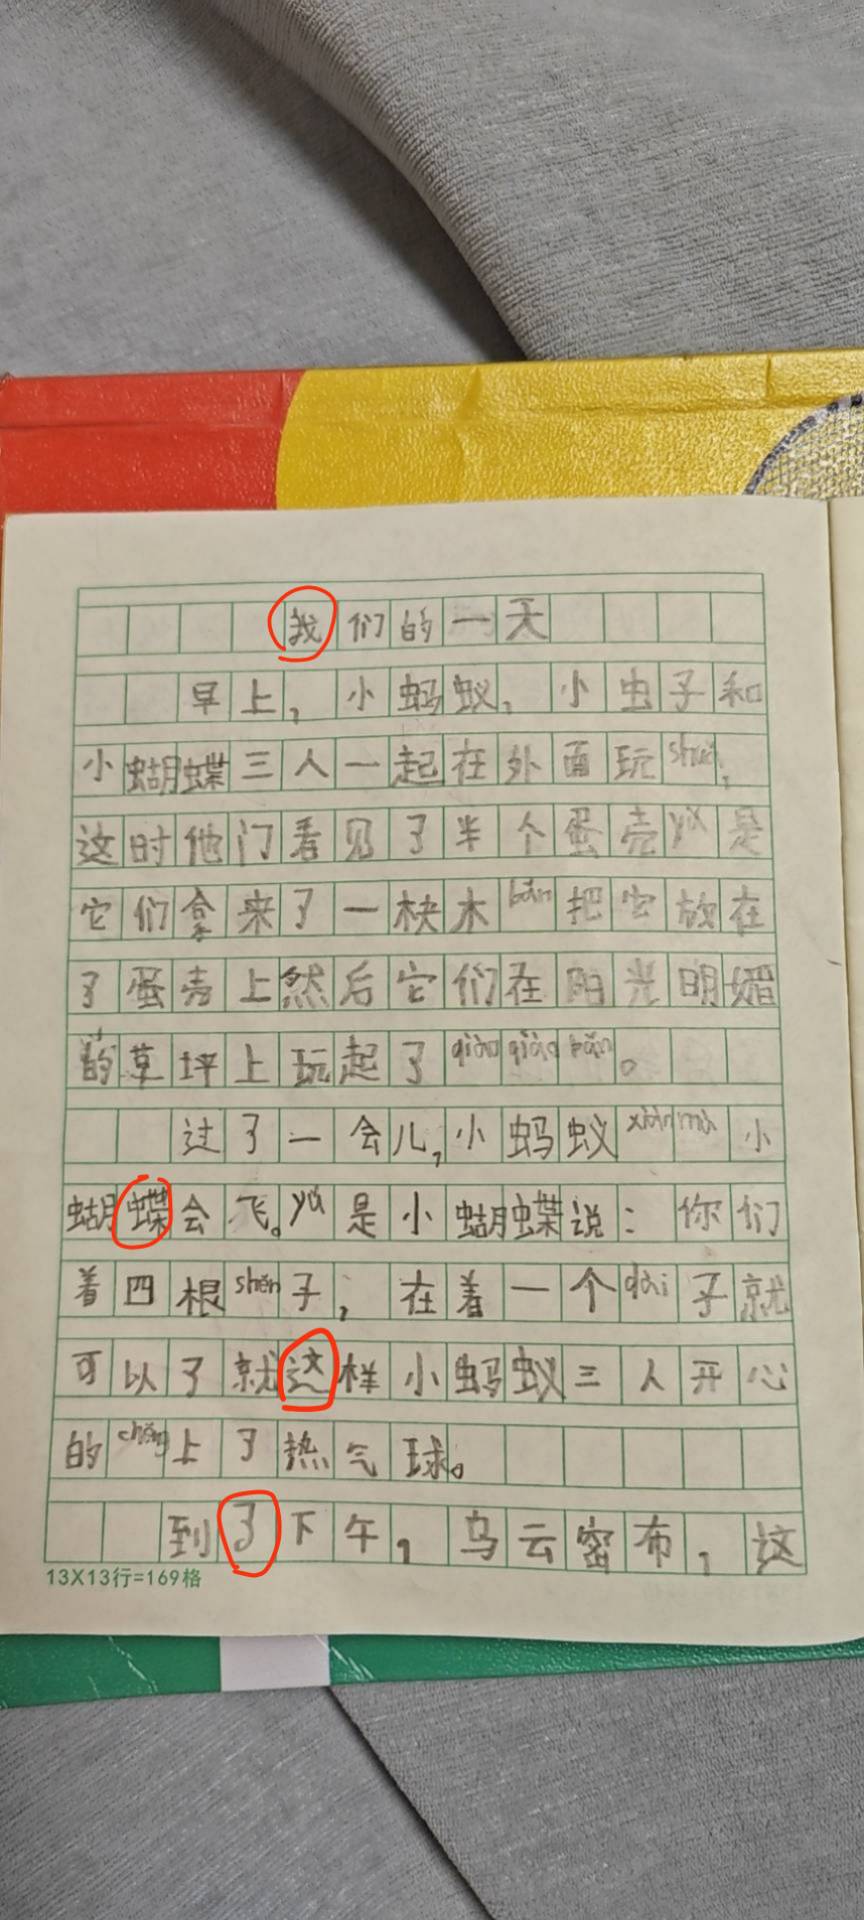 我们的一天
早上，小蚂蚁，小虫子和
小蝴蝶三人一起在外面玩shuǎ，
这时他门看见了半个蛋壳yú是
它们拿来了一块木bǎn把它放在
了蛋壳上然后它们在阳光明媚
的草坪上玩起了qiāo qiāo bǎn。
过了一会儿，小蚂蚁xiàn mù小
蝴蝶会飞。yú是小蝴蝶说：你们
着四根shén子，在着一个dài子就
可以了就这样小蚂蚁三人开心
的chéng上了热气球。
到了下午，乌云密布，这
13X13行=169格